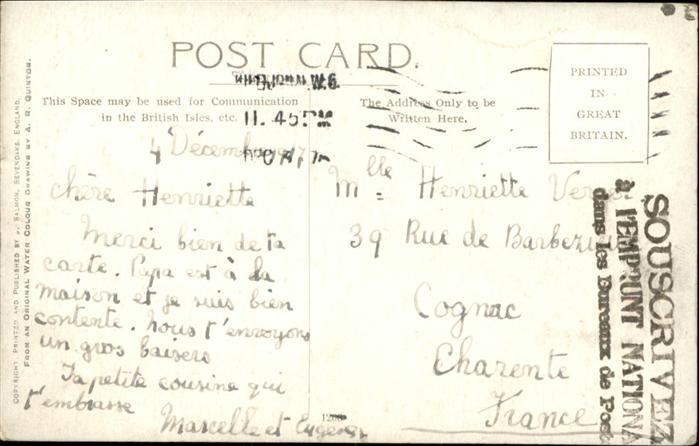 POST CARD.
This Space may be used for Communication
in the British Isles, etc.
The Address Only to be
Written Here.
PRINTED
IN
GREAT
BRITAIN.
W.C.
11.45 PM
4 Décembre
chère Henriette
Merci bien de ta
carte. Papa est à la
maison et je suis bien
contente. nous t'envoyons
un gros baisers
Ta petite cousine qui
t'embrasse
Marcelle et
Mlle Henriette
39 Rue de
Cognac
Charente
France
SOUSCRIVEZ
à l'EMPRUNT NATIONA
dans les Bureaux de Pos
COPYRIGHT. PRINTED AND PUBLISHED BY J. SALMON, SEVENOAKS, ENGLAND.
FROM AN ORIGINAL WATER COLOUR DRAWING BY A. R. QUINTON.